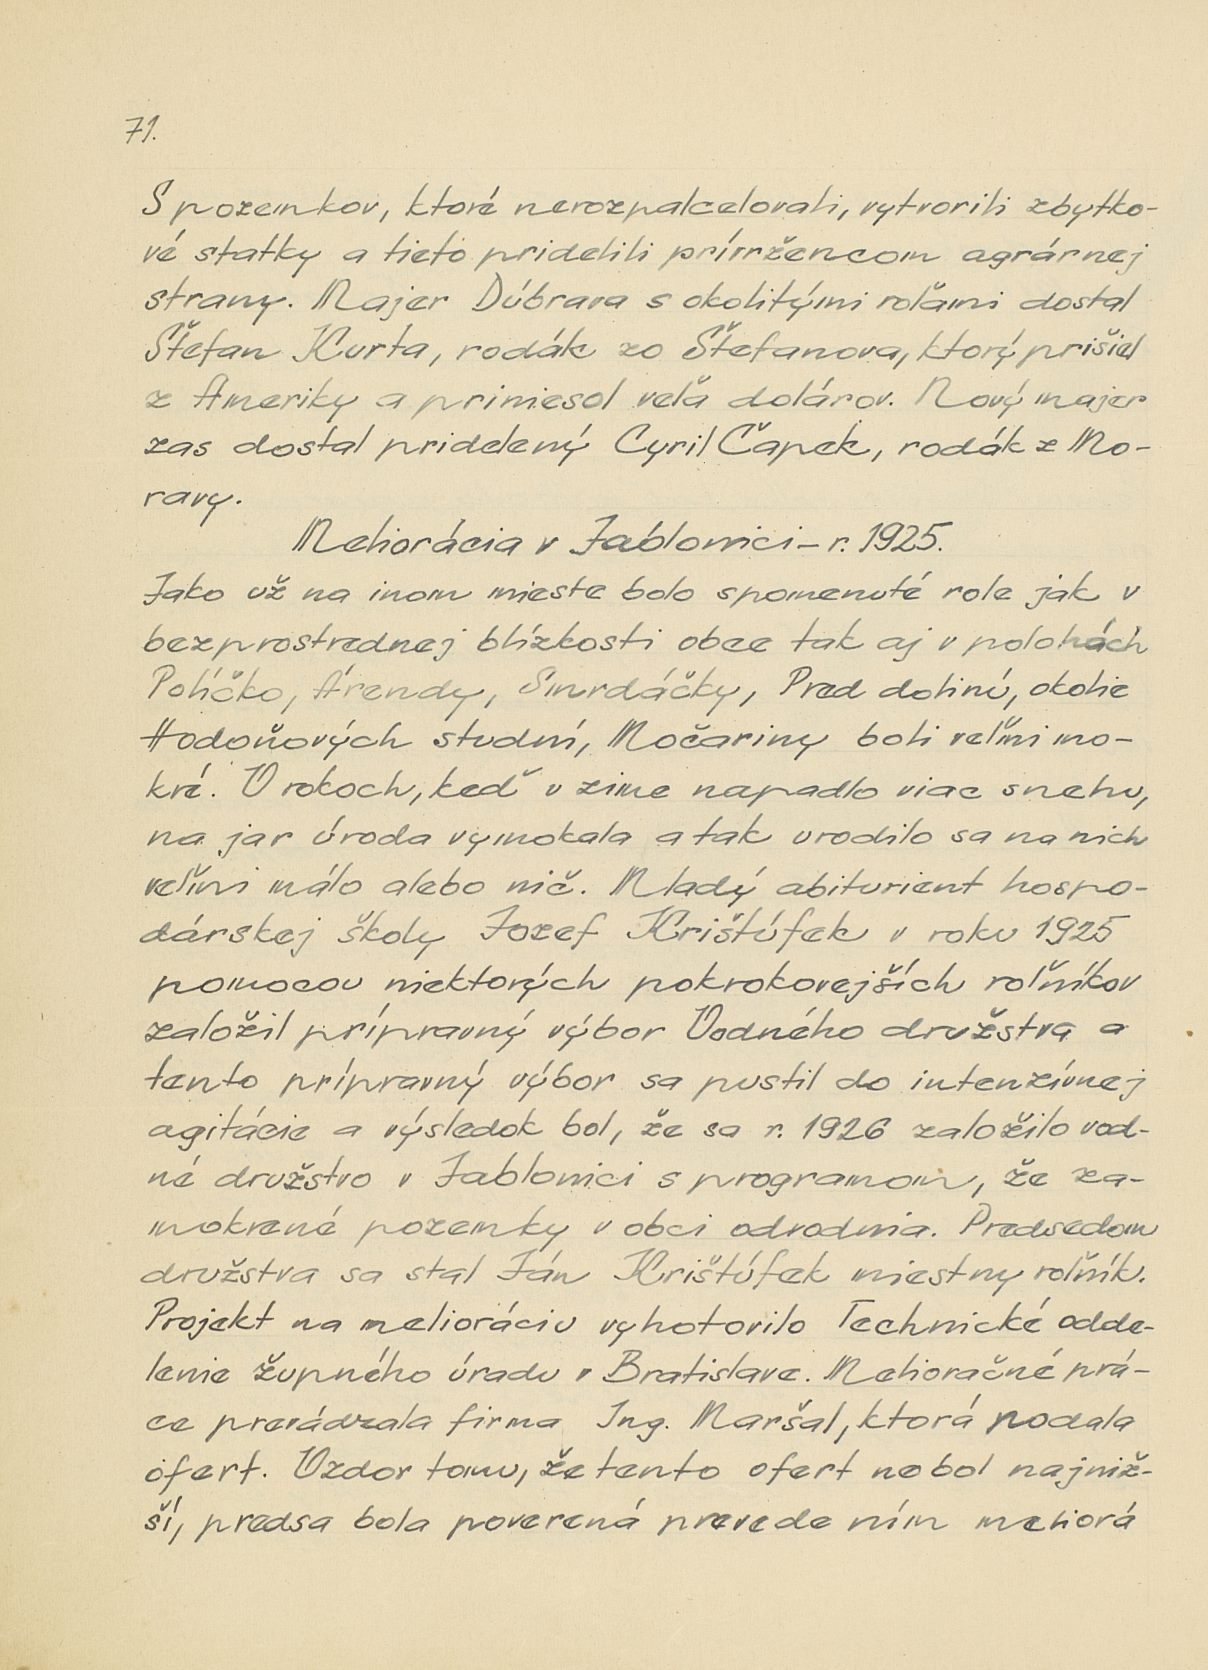 71.
S pozemkov, ktoré nerozpalcelovali, vytvorili zbytko-
vé statky a tieto pridelili prívržencom agrárnej
strany. Majer Dúbrava s okolitými roľami dostal
Štefan Kurta, rodák zo Štefanova, ktorý prišiel
z Ameriky a priniesol veľa dolárov. Nový majer
zas dostal pridelený Cyril Čapek, rodák z Mo-
ravy.
Meliorácia v Jablonici - r. 1925.
Jako už na inom mieste bolo spomenuté role jak v
bezprostrednej blízkosti obce tak aj v polohách
Políčko, Árendy, Smrdáčky, Pred dolinú, okolie
Hodoňových studní, Močariny boli veľmi mo-
kré. V rokoch, keď v zime napadlo viac snehu,
na jar úroda vymokala a tak urodilo sa na nich
veľmi málo alebo nič. Mladý abiturient hospo-
dárskej školy Jozef Krištúfek v roku 1925
pomocou niektorých pokrokovejších roľníkov
založil prípravný výbor Vodného družstva a
tento prípravný výbor sa pustil do intenzívnej
agitácie a výsledok bol, že sa r. 1926 založilo vod-
né družstvo v Jablonici s programom, že za-
mokrené pozemky v obci odvodnia. Predsedom
družstva sa stal Ján Krištúfek miestny roľník.
Projekt na melioráciu vyhotovilo Technické odde-
lenie župného úradu v Bratislave. Melioračné prá-
ce prevádzala firma Ing. Maršal, ktorá podala
ofert. Vzdor tomu, že tento ofert nebol najniž-
ší, predsa bola poverená prevede ním meliorá